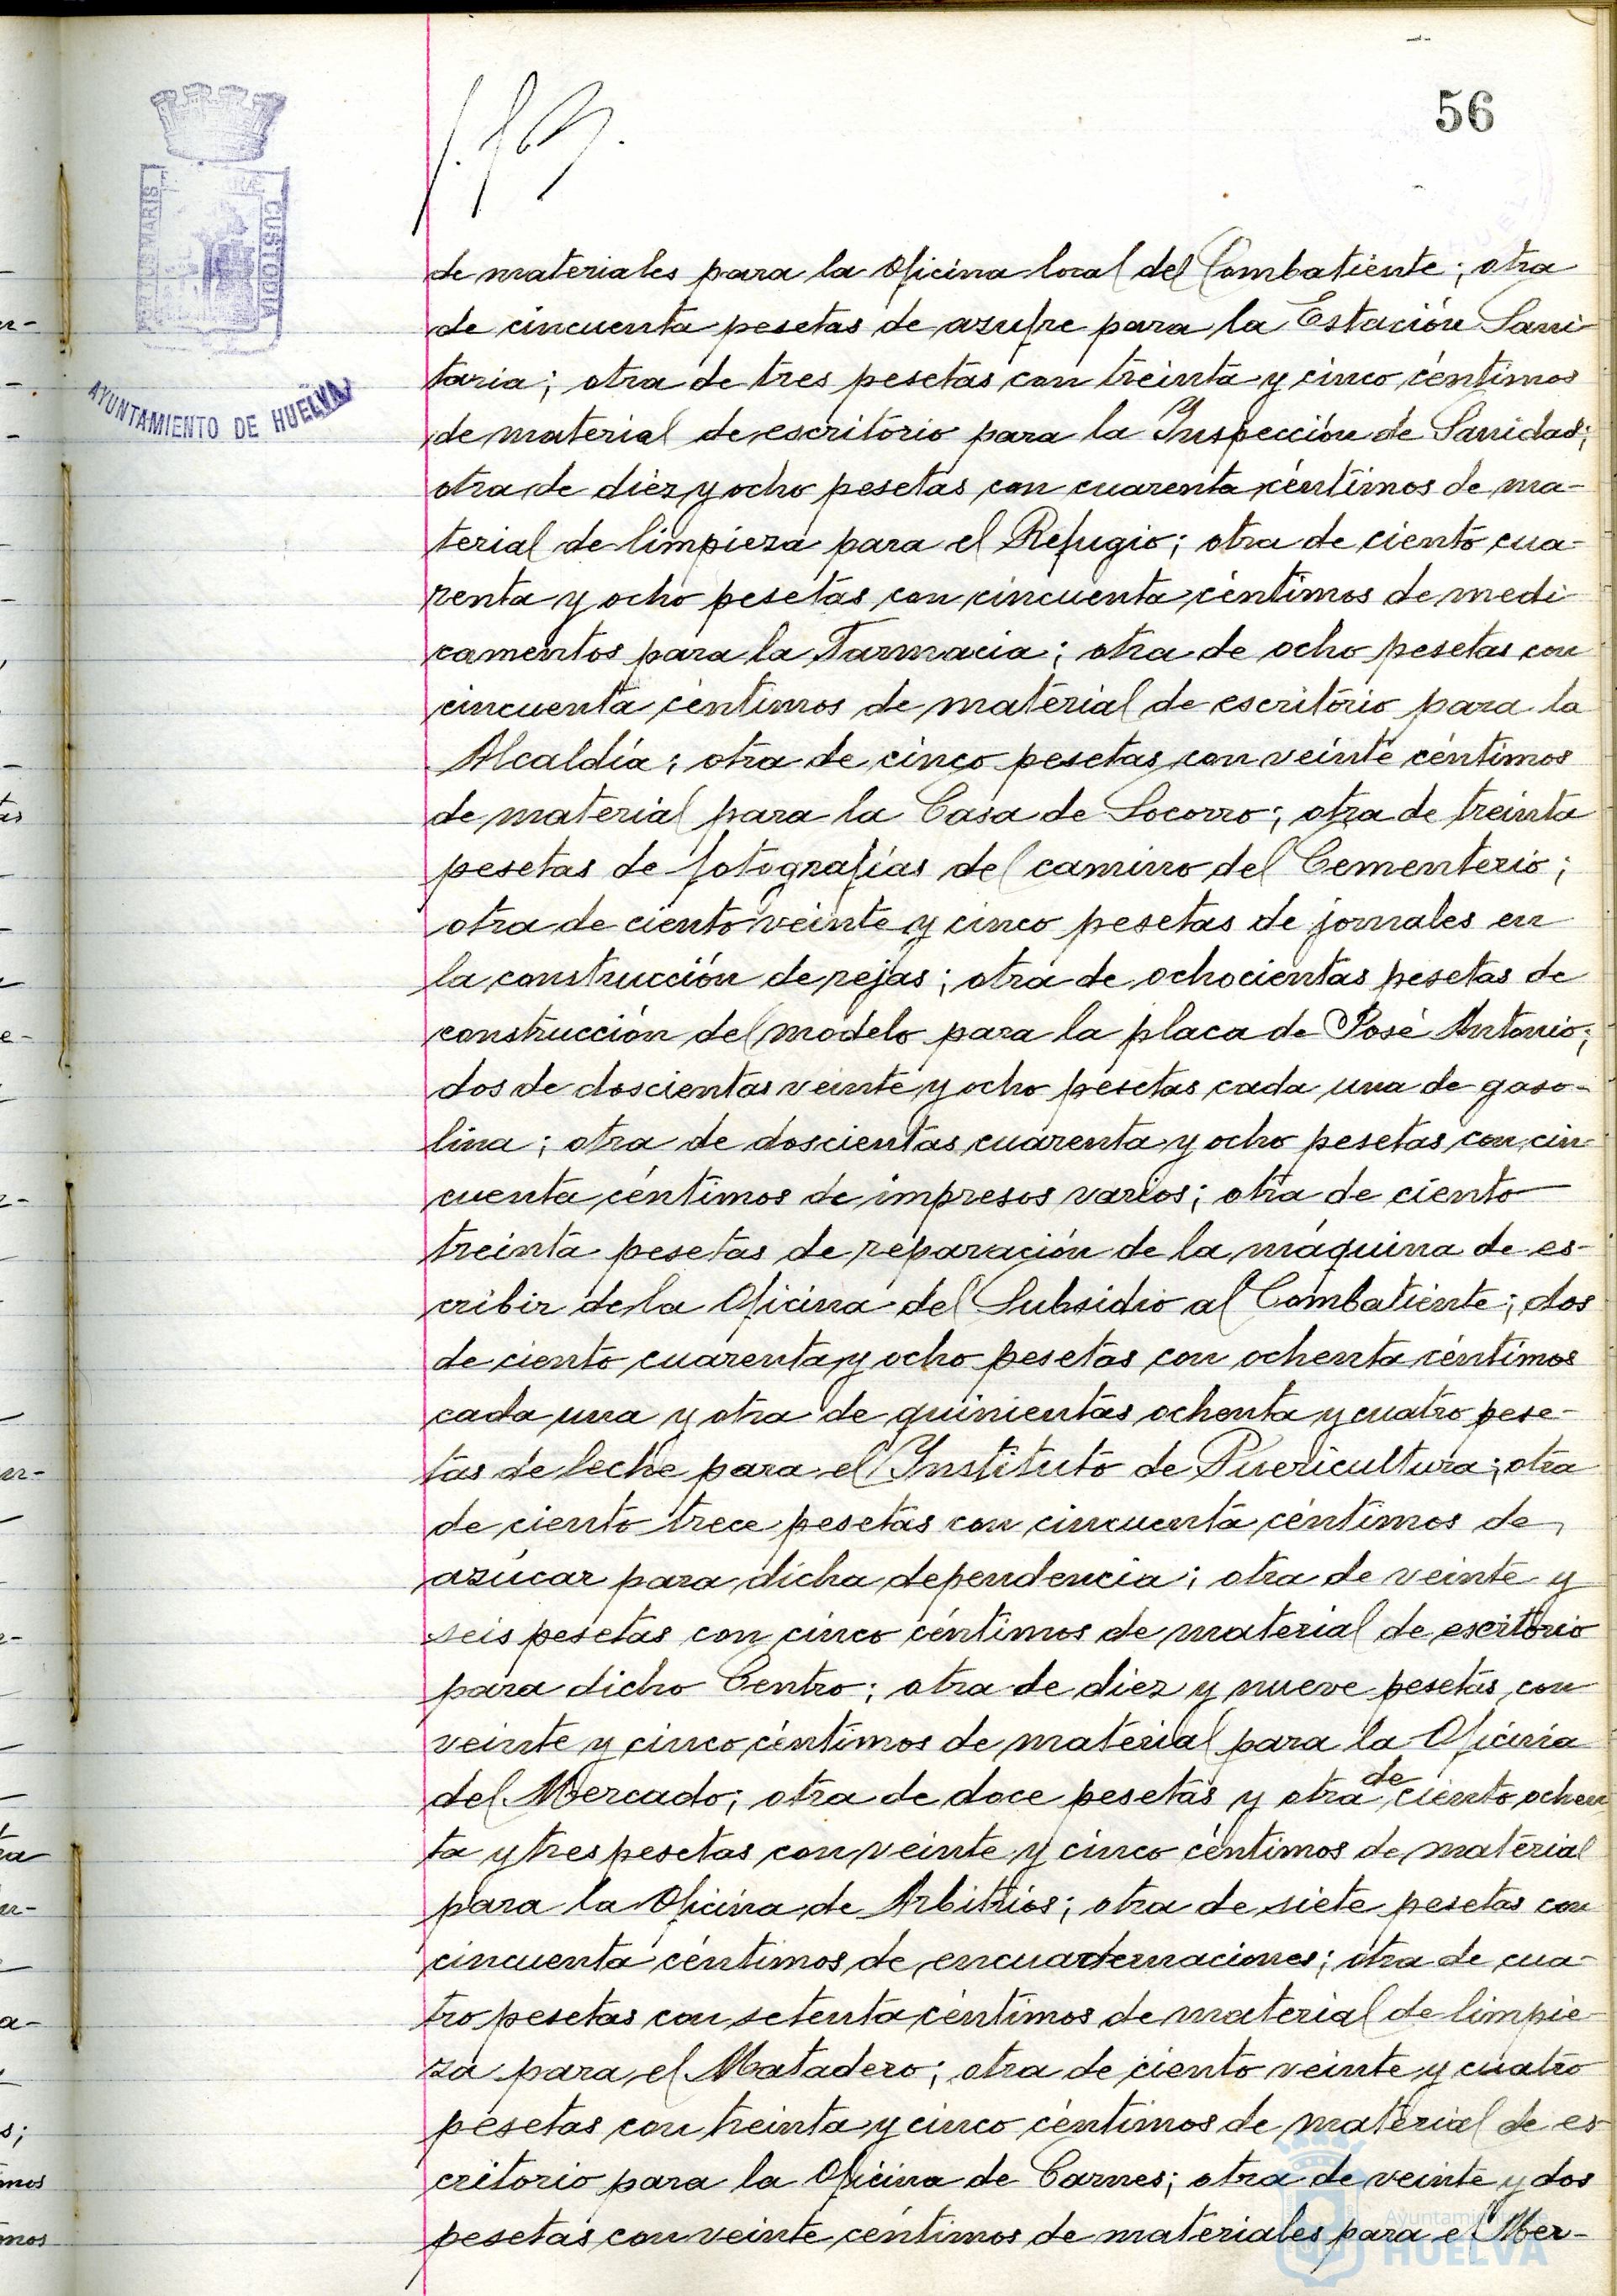 56
PORTUS MARIS
CUSTODIA
AYUNTAMIENTO DE HUELVA
de materiales para la Oficina local del Combatiente; otra
de cincuenta pesetas de azufre para la Estación Sani-
taria; otra de tres pesetas con treinta y cinco céntimos
de material de escritorio para la Inspección de Sanidad;
otra de diez y ocho pesetas con cuarenta céntimos de ma-
terial de limpieza para el Refugio; otra de ciento cua-
renta y ocho pesetas con cincuenta céntimos de medi
camentos para la Farmacia; otra de ocho pesetas con
cincuenta céntimos de material de escritorio para la
Alcaldía; otra de cinco pesetas con veinte céntimos
de material para la Casa de Socorro; otra de treinta
pesetas de fotografías del camino del Cementerio;
otra de ciento veinte y cinco pesetas de jornales en
la construcción de rejas; otra de ochocientas pesetas de
construcción del modelo para la placa de José Antonio;
dos de doscientas veinte y ocho pesetas cada una de gaso-
lina; otra de doscientas cuarenta y ocho pesetas con cin
cuenta céntimos de impresos varios; otra de ciento
treinta pesetas de reparación de la máquina de es-
cribir de la Oficina del Subsidio al Combatiente; dos
de ciento cuarenta y ocho pesetas con ochenta céntimos
cada una y otra de quinientas ochenta y cuatro pese-
tas de leche para el Instituto de Puericultura; otra
de ciento trece pesetas con cincuenta céntimos de
azúcar para dicha dependencia; otra de veinte y
seis pesetas con cinco céntimos de material de escritorio
para dicho Centro; otra de diez y nueve pesetas con
veinte y cinco céntimos de material para la Oficina
del Mercado; otra de doce pesetas y otra de ciento ochen
ta y tres pesetas con veinte y cinco céntimos de material
para la Oficina de Arbitrios; otra de siete pesetas con
cincuenta céntimos de encuadernaciones; otra de cua-
tro pesetas con setenta céntimos de material de limpie-
za para el Matadero; otra de ciento veinte y cuatro
pesetas con treinta y cinco céntimos de material de es
critorio para la Oficina de Carnes; otra de veinte y dos
pesetas con veinte céntimos de materiales para el Mer-
Ayuntamiento de
HUELVA